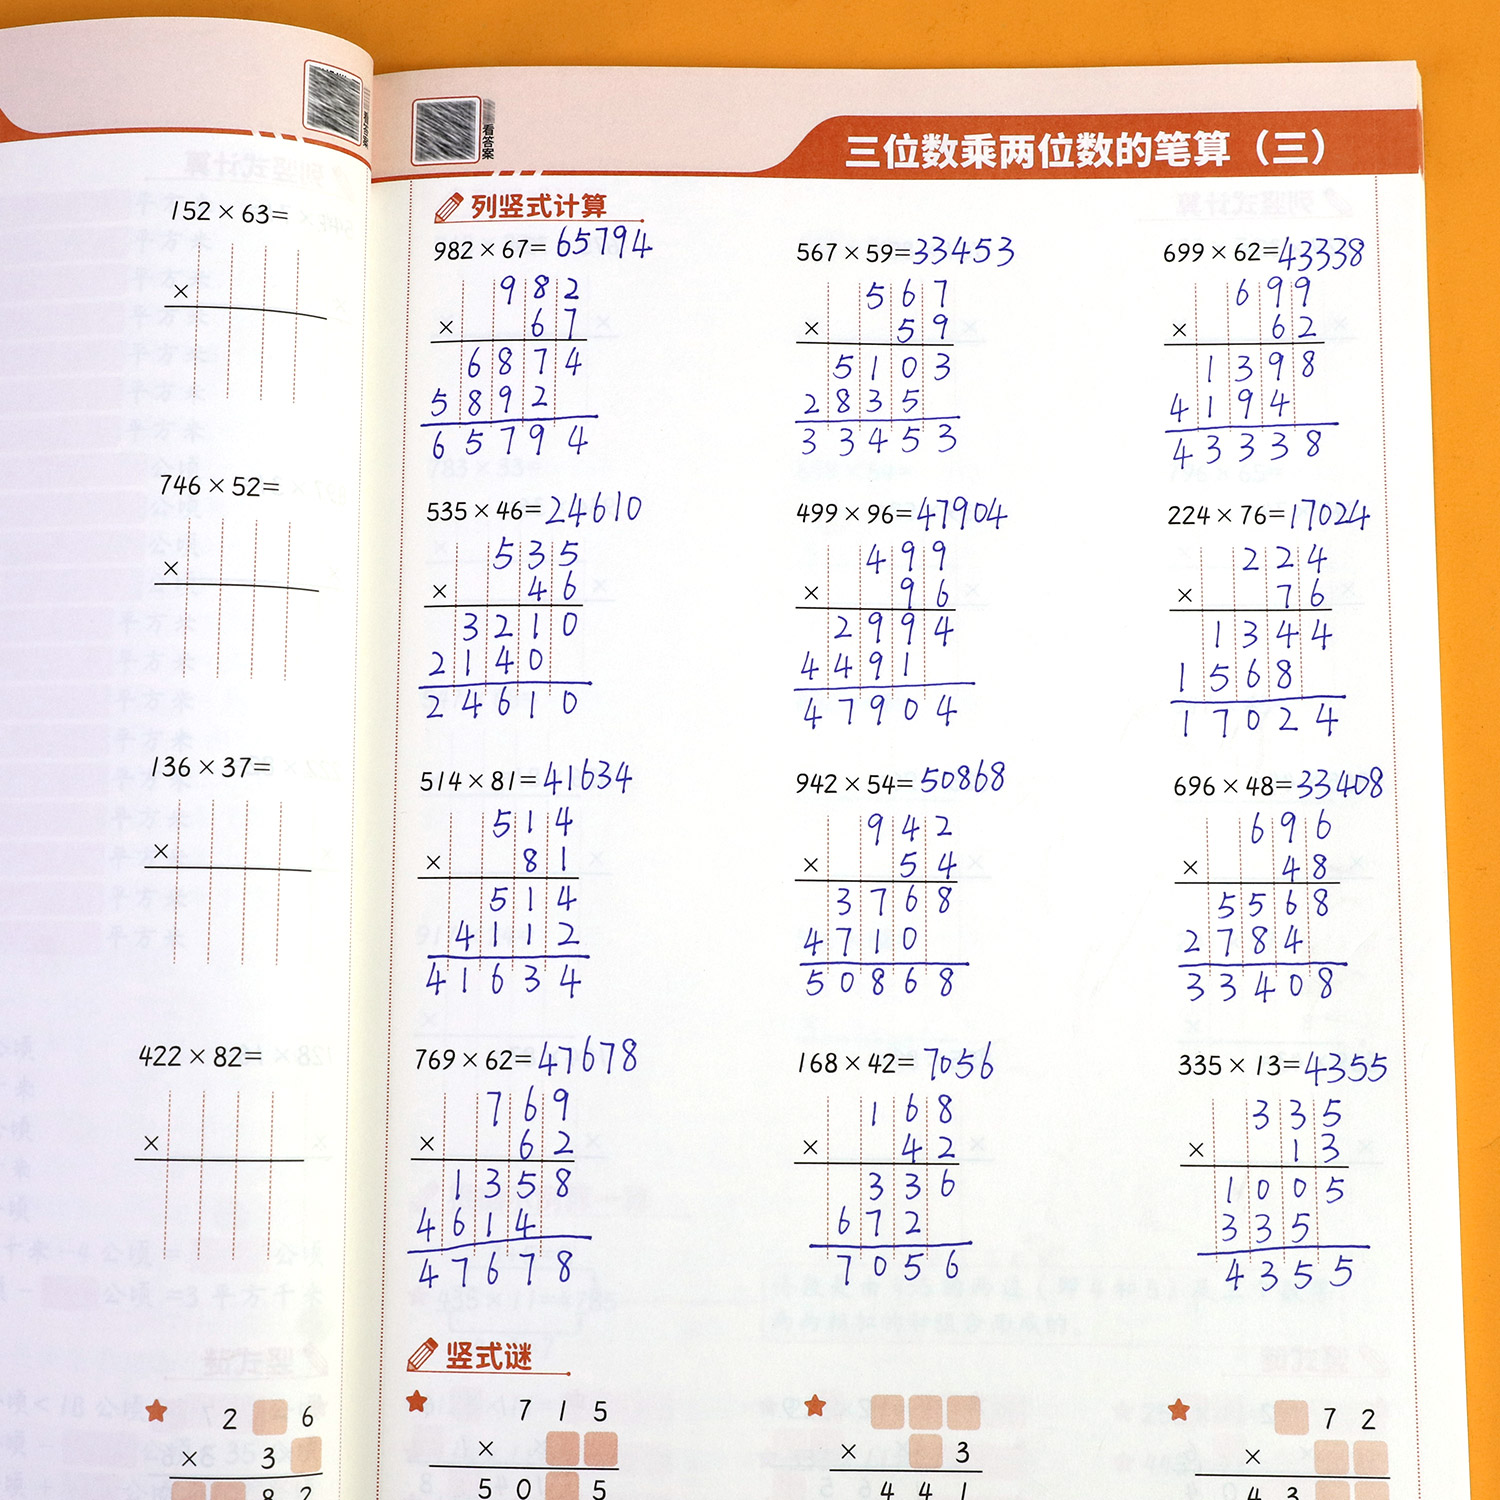 152×63=
×
746×52=
×
136×37=
×
422×82=
×
2 6
× 3
8 2
看答案
看答案
三位数乘两位数的笔算（三）
列竖式计算
982×67=65794
982
× 67
6874
5892
65794
567×59=33453
567
× 59
5103
2835
33453
699×62=43338
699
× 62
1398
4194
43338
535×46=24610
535
× 46
3210
2140
24610
499×96=47904
499
× 96
2994
4491
47904
224×76=17024
224
× 76
1344
1568
17024
514×81=41634
514
× 81
514
4112
41634
942×54=50868
942
× 54
3768
4710
50868
696×48=33408
696
× 48
5568
2784
33408
769×62=47678
769
× 62
1358
4614
47678
168×42=7056
168
× 42
336
672
7056
335×13=4355
335
× 13
1005
335
4355
竖式谜
7 1 5
×
5 0 5
× 3
4 4 1
7 2
×
4 3